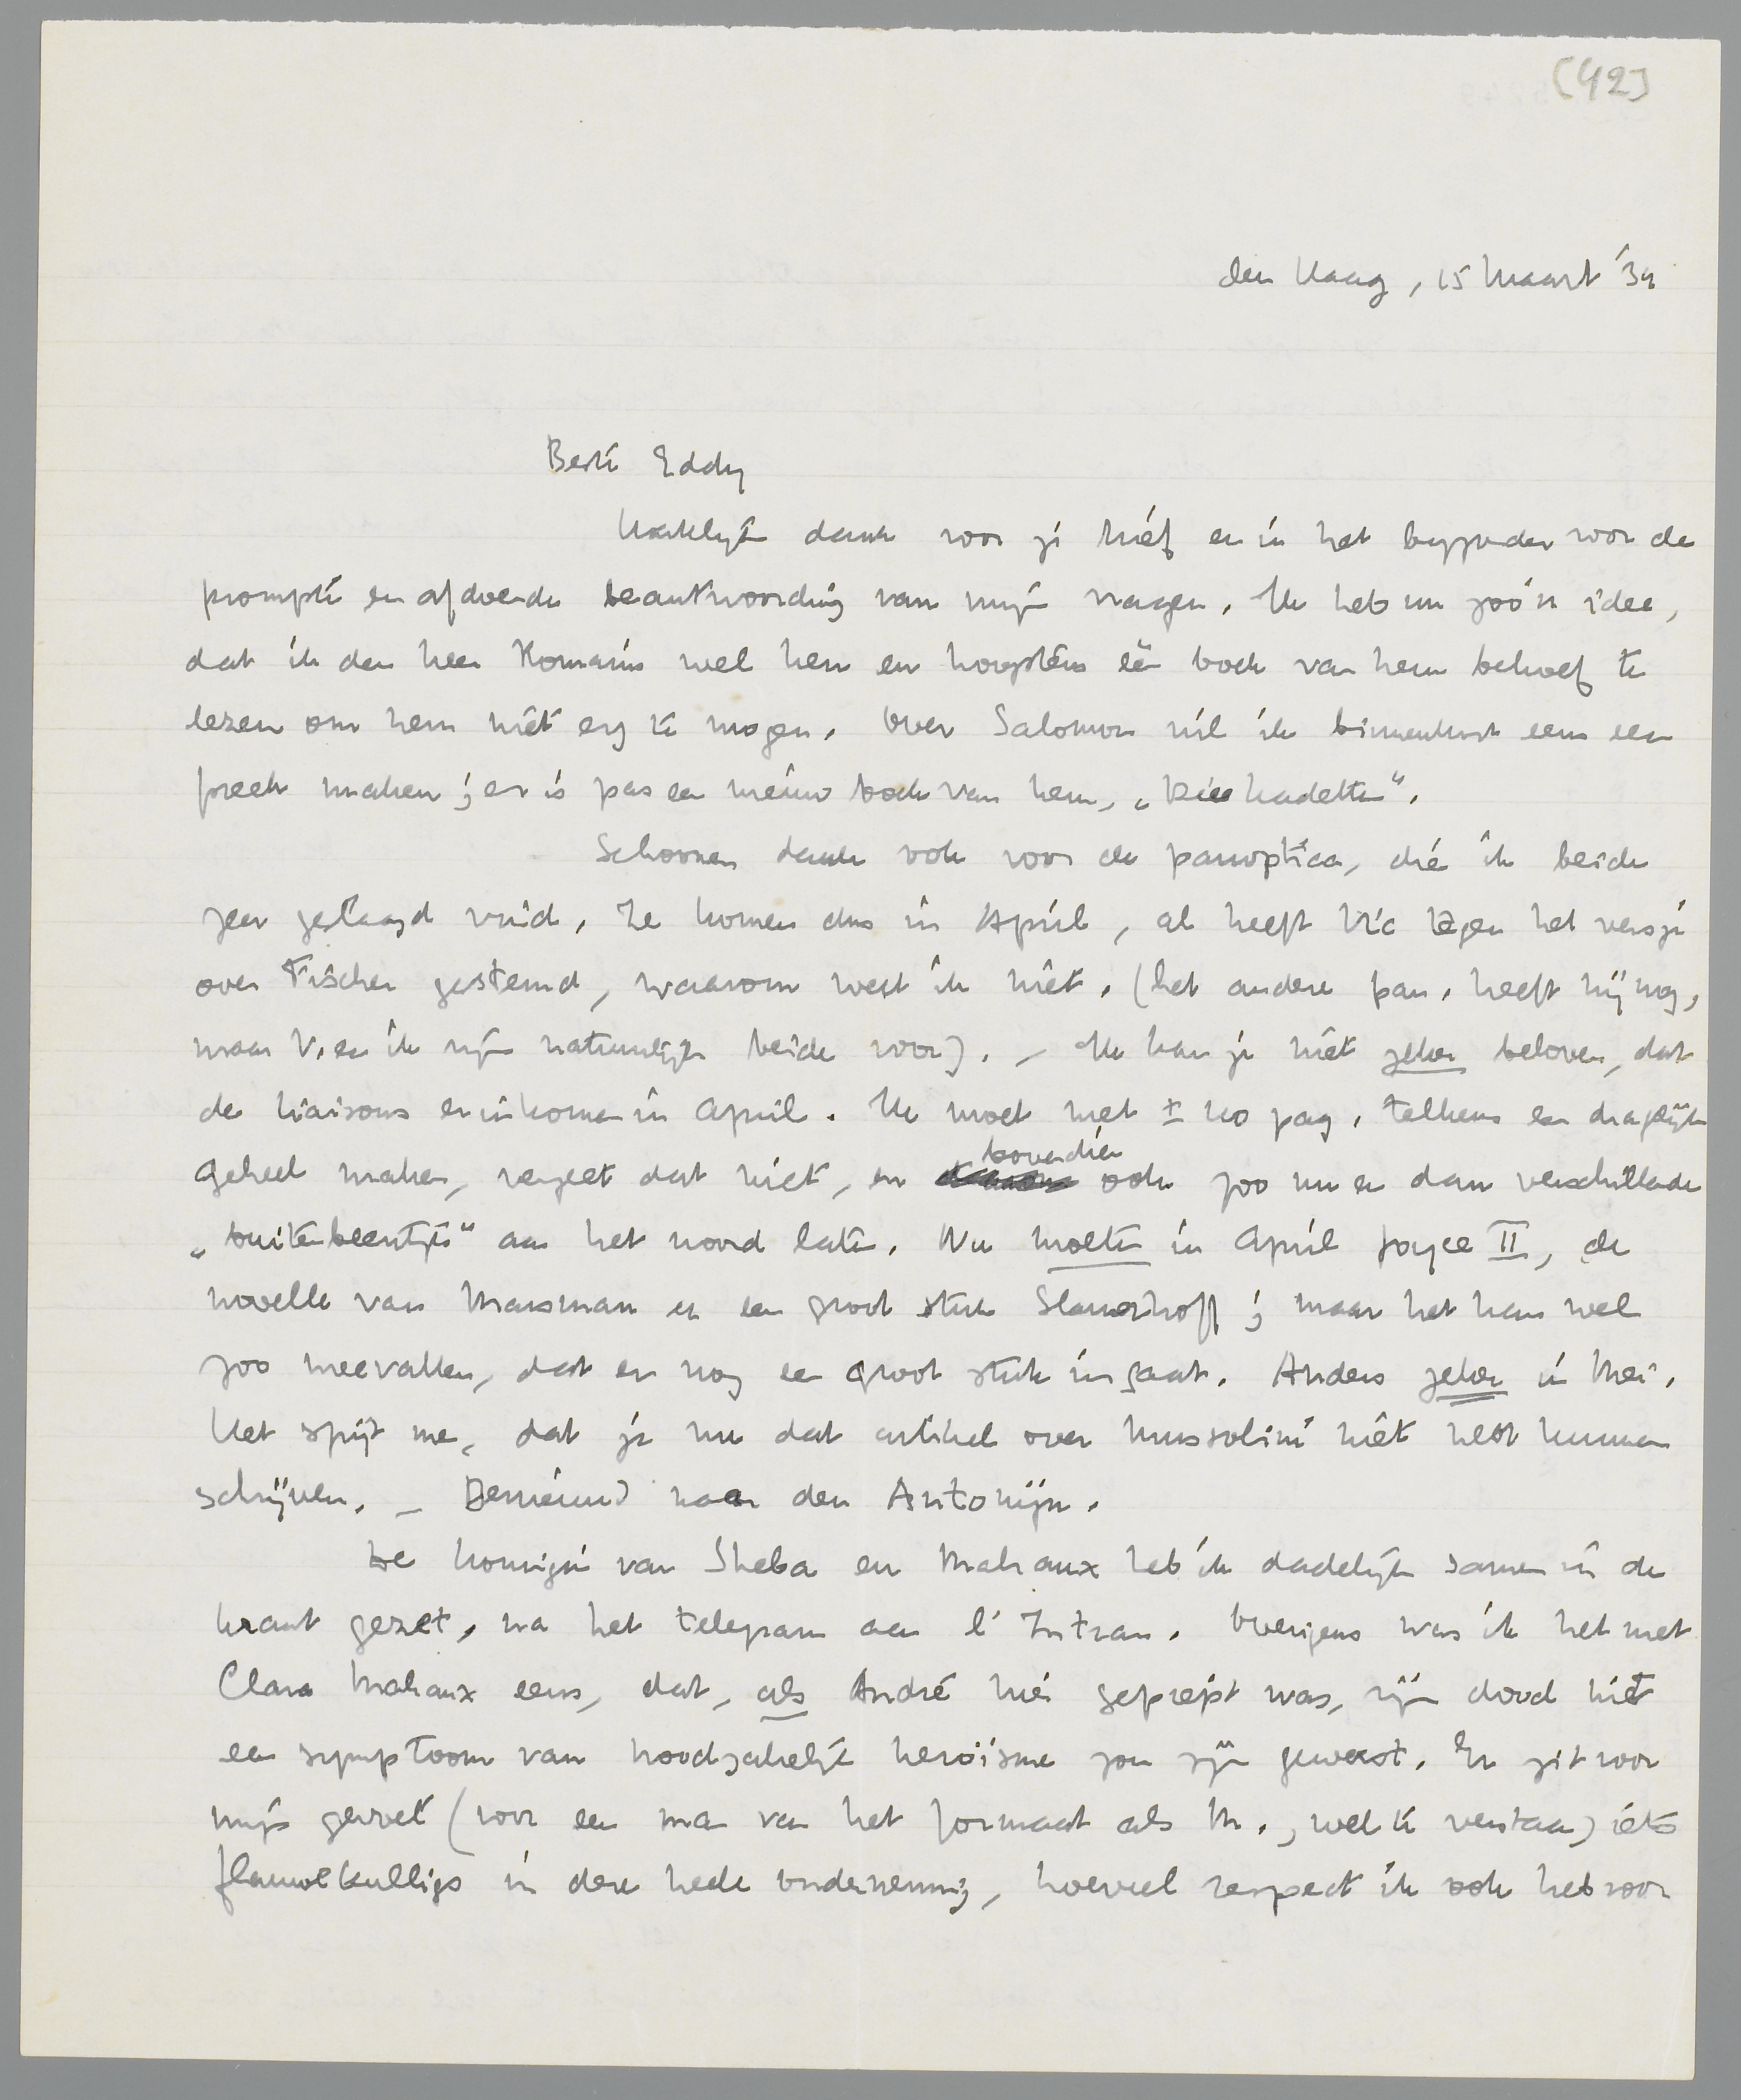 [42]
den Haag, 15 Maart '34
Beste Eddy
Hartelijk dank voor je brief en in het bijzonder voor de
prompte en afdoende beantwoording van mijn vragen. Ik heb nu zoo'n idee,
dat ik den heer Romains wel ken en hoogstens één boek van hem behoef te
lezen om hem niet erg te mogen. Over Salomon wil ik binnenkort eens een
preek maken; er is pas een nieuw boek van hem, „Die Kadetten".
Schoonen dank ook voor de panoptica, die ik beide
zeer geslaagd vind. Ze komen dus in April, al heeft Vic tegen het versje
over Fischer gestemd, waarom weet ik niet. (het andere pan. heeft hij nog,
maar V. en ik zijn natuurlijk beide voor). – Ik kan je niet zeker beloven, dat
de liaisons erin komen in April. Ik moet met ± 60 pag. telkens een dragelijk
geheel maken, vergeet dat niet, en bovendien ook zoo nu en dan verschillende
„buitenbeentjes" aan het woord laten. Nu moeten in April Joyce II, de
novelle van Marsman en een groot stuk Slauerhoff; maar het kan wel
zoo meevallen, dat er nog een groot stuk in gaat. Anders zeker in Mei.
Het spijt me, dat je nu dat artikel over Mussolini niet hebt kunnen
schrijven. – Benieuwd naar den Antonijn.
De koningin van Sheba en Malraux heb ik dadelijk samen in de
krant gezet, na het telegram aan l'Intran. Overigens was ik het met
Clara Malraux eens, dat, als André hier gepiept was, zijn dood niet
een symptoom van noodzakelijk heroïsme zou zijn geweest. Er zit voor
mijn gevoel (voor een man van het formaat als M., wel te verstaan) iets
flauwekulligs in deze heele onderneming, hoeveel respect ik ook heb voor